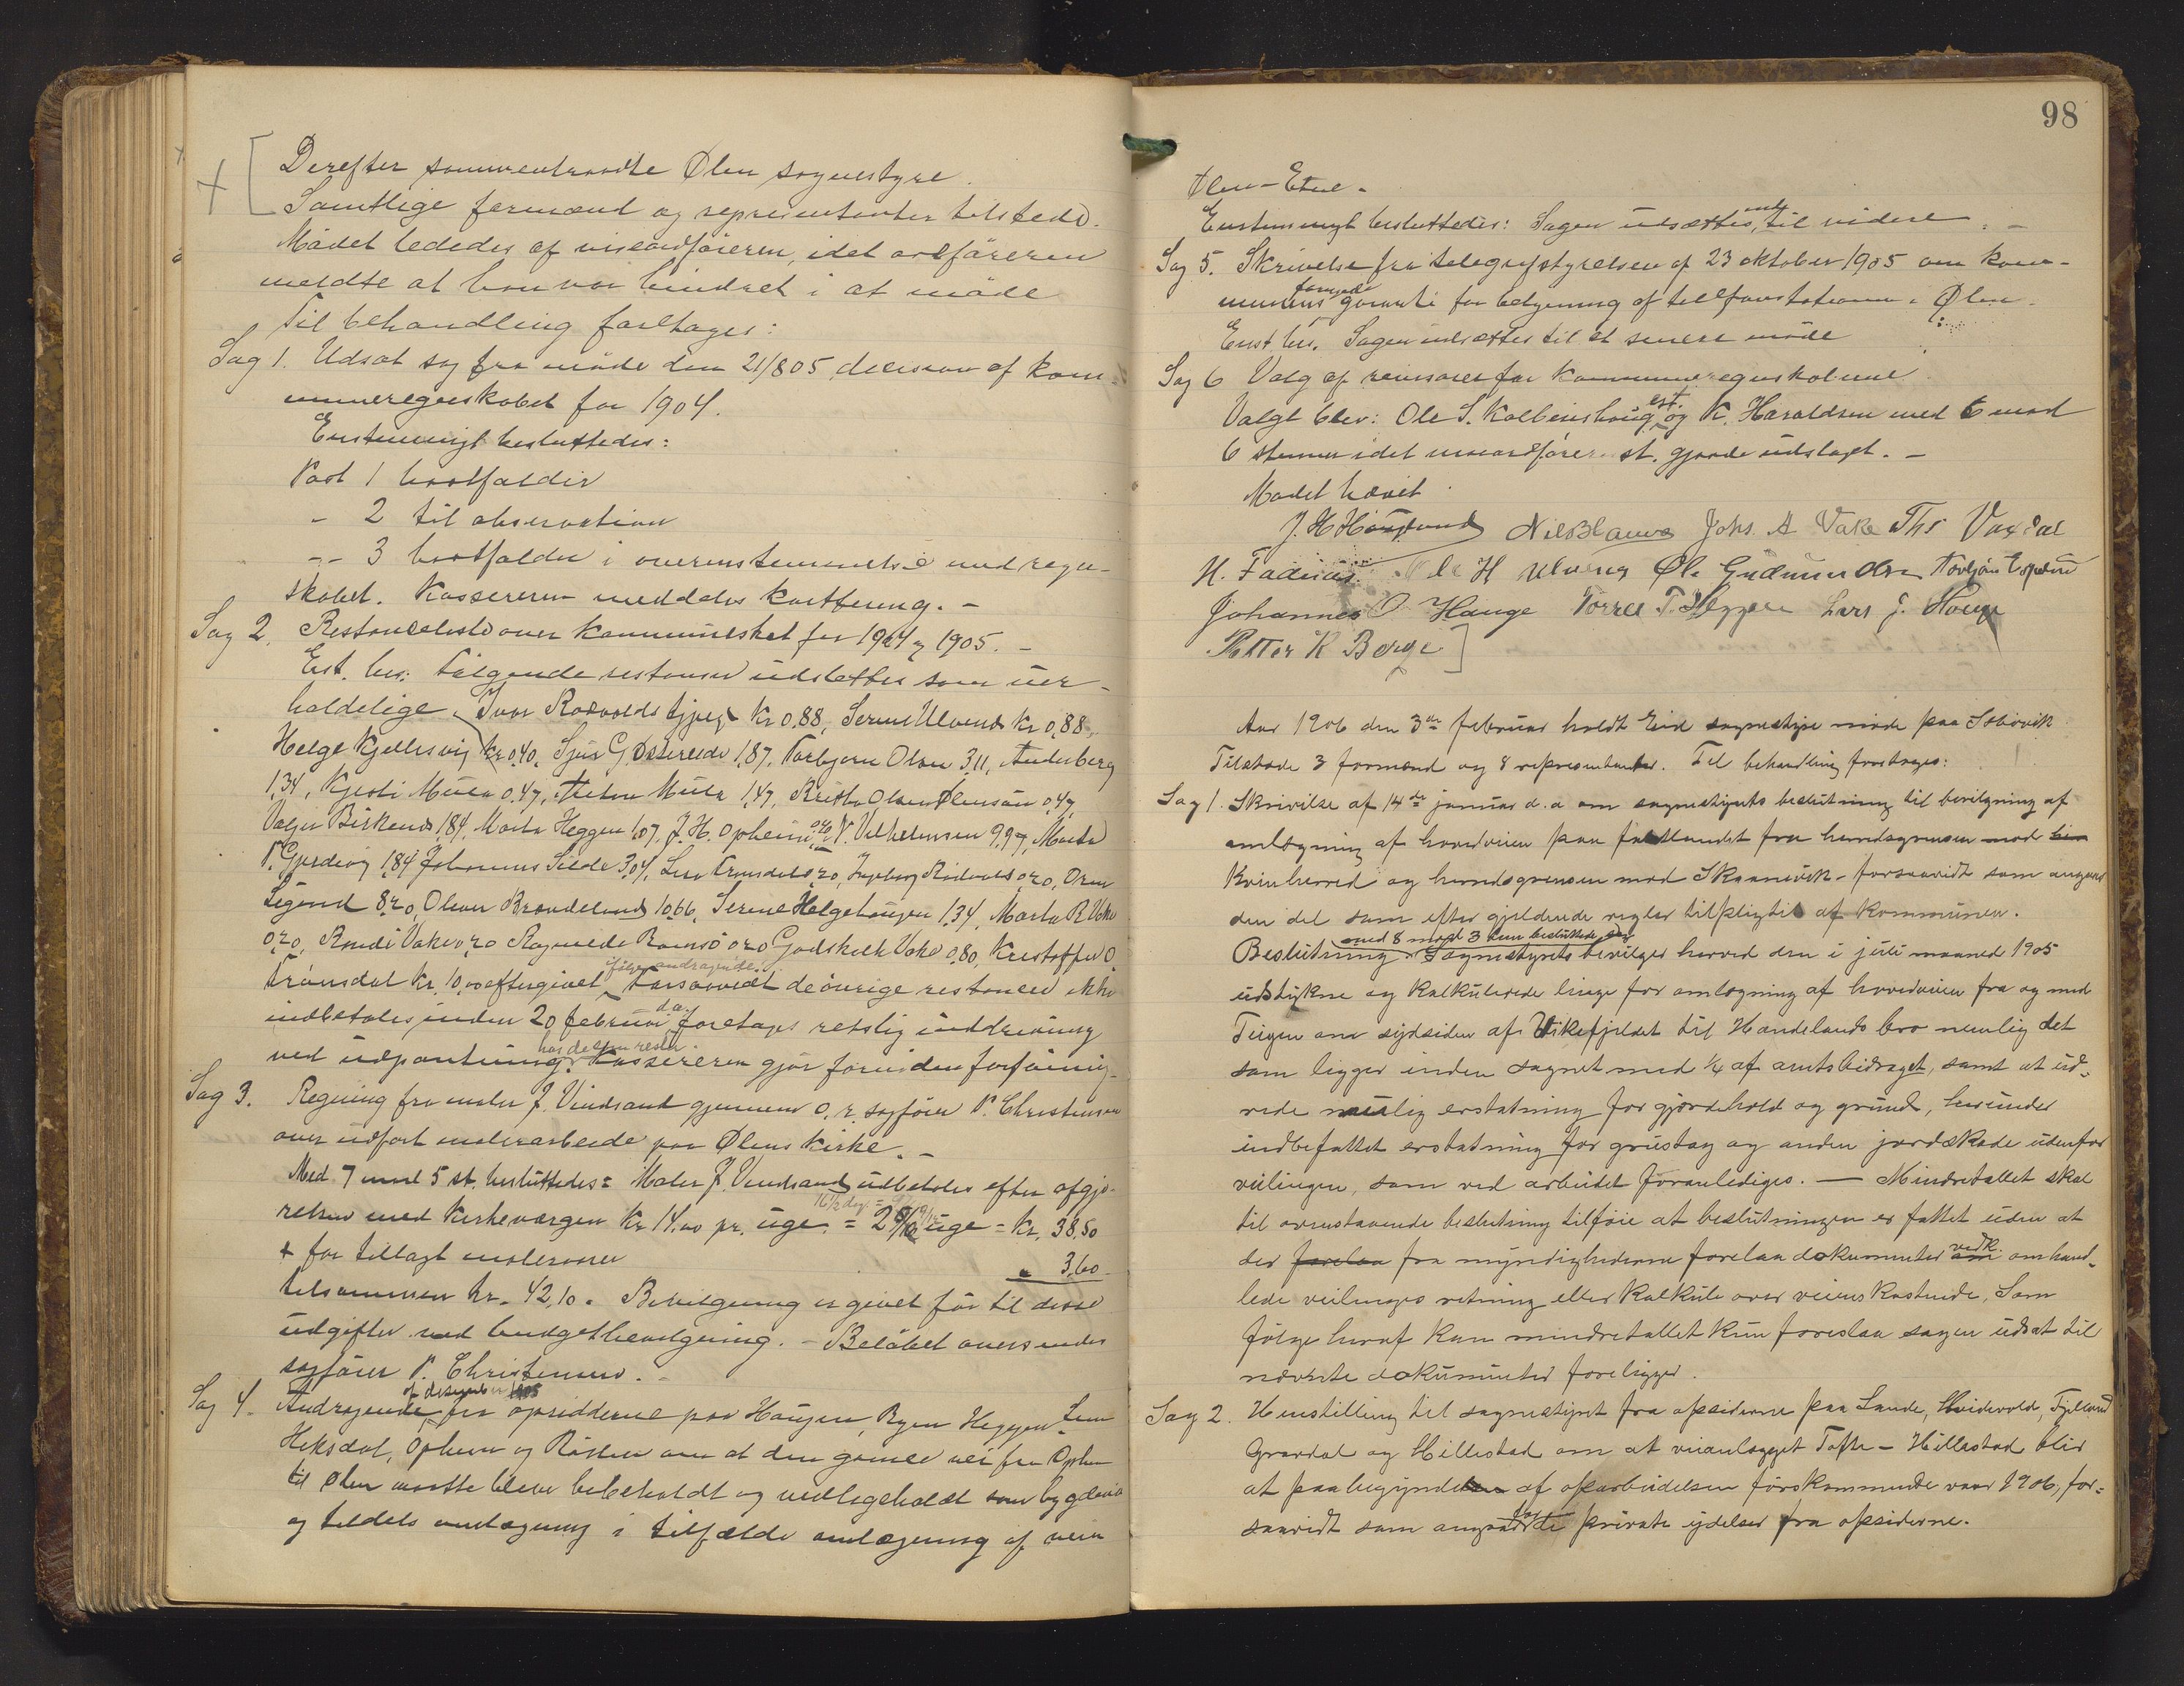 Derefter sammentraadte Ølen sognestyre.
Samtlige formænd og repræsentanter tilstede.
Mødet lededes af viseordføreren, idet ordføreren
meldte at han var hindret i at møde
Til behandling foretages:
Sag 1. Udsat sag fra møde den 21/8 05, decision af kom-
muneregnskabet for 1904.
Enstemmigt besluttedes:
Post 1 bortfalder
" 2 til observation
"- 3 bortfalder i overensstemmelse med regn-
skabet. Kassereren meddeles kvittering. -
Sag 2. Restanceliste over kommuneskat for 1904 og 1905. -
Enst. bes: Følgende restancer udslettes som uer-
holdelige. Ivar Kr 0,88, Serine Ulvend Kr 0,88,
Helge Kjellesvig Kr 0,40, Sjur G. 1,87, Torbjørn Olsen 3,11, Anderberg
1,34, Kjesti 0,47, 1,47, Olsen 0,47,
Valgar Birkeland 1,84, Marta Heggen 1,07, J. H. Opheim 0,20, V. Vilhelmsen 9,97, Marta
P. 1,84 Johannes Silde 3,04, Lars Trønsdal 0,20, Ingeborg 0,20,
8,20, Oliver Brandeland 10,66, Serine Helgehaugen 1,34, Marta R. Vake
0,20, Vake 0,20 0,20 Godskalk Vake 0,80, Kristoffer O.
Trønsdal Kr. 10,00 eftergivet ifølge andragende. Forsaavidt de øvrige restancer ikke
indbetales inden 20 februar d.a. foretages retslig inddrivning
ved udpantning hos de som rester. Kassereren gjør fornøden forføining
Sag 3. Regning fra maler J. Vindsand gjennem o. r. sagfører P. Christensen
over udført malerarbeide paa Ølens kirke. -
Med 7 mod 5 st. besluttedes: Maler J. Vindsand udbetales efter afgjø-
relse med kirkevergen Kr 14,00 pr. uge = uge = Kr. 38,50
+ for tillagt malervarer " 3,60
tilsammen Kr. 42,10. Bevilgning er givet før til disse
udgifter ved budgetbevilgning. - Beløbet oversendes
sagfører P. Christensen. -
Sag 4. Andragende af desember 1905 fra opsidderne paa Haugen, Heggen
Heksdal, Opheim og om at den gamle vei fra Opheim
til Ølen maatte blive bibeholdt og vedligeholdt som bygdevei
og tildels omlægning i tilfælde omlægning af veien
98
Ølen-Etne.
Enstemmigt besluttedes: Sagen udsættes indtil videre -
Sag 5. Skrivelse fra telegrafstyrelsen af 23 oktober 1905 om kom-
munens fornyede garanti for betjening af telefonstationen i Ølen.
Enst. bes. Sagen udsættes til et senere møde
Sag 6 Valg af revisorer for kommuneregnskaberne
Valgt blev: Ole S. Kolbeinshaug est. og K. Haraldsen med 6 mod
6 stemmer idet viseordførerens st. gjorde udslaget. -
Mødet hævet.
J. H. Nils Johs. A Vake Ths Vaxdal
H. Fadnæs. Ole H Ulveng Ole Gudmundsen Torbjørn
Johannes O Hauge Torres T. Heggen Lars J. Hauge
Petter R Berge ]
Aar 1906 den 3de februar holdt Eid sognestyre møde paa Sobiovik
Tilstede 3 formænd og 8 repræsentanter. Til behandling foretages:
Sag 1. Skrivelse af 14de januar d. a. om sognestyrets beslutning til bevilgning af
omlægning af hovedveien paa fastlandet fra herredsgrænsen mod
Kvinherred og herredsgrænsen mod Skaanevik - forsaavidt som angaar
den del som efter gjældende regler tilpligtes af kommunen.
med 8 mod 3 besluttedes
Beslutning. Sognestyret bevilger herved den i juli maaned 1905
udstukne og kalkulerede linje for omlægning af hovedveien fra og med
Teigen om sydsiden af Vikefjeldet til Handelands bro nemlig det
som ligger inden sognet med 1/4 af amtsbidraget, samt at ud-
rede mulig erstatning for gjærdehold og grund, herunder
indbefattet erstatning for grustag og anden jordskade udenfor
veilinjen, som ved arbeidet foranlediges. — Mindretallet skal
til ovenstaaende beslutning tilføie at beslutningen er fattet uden at
der fra myndighederne forelaa dokumenter vedk. omhand-
lede veilinjes retning eller kalkule over veiens kostende. Som
følge heraf kan mindretallet kun foreslaa sagen udsat til
nævnte dokumenter foreligger.
Sag 2. Henstilling til sognestyret fra opsiderne paa Lunde, Hvidevold, Fjelland
Gravdal og Hillestad om at veianlægget Tofte - Hillestad blir
at paabegynde af oparbeidelsen førstkommende vaar 1906, for-
saavidt som angaar de private ydelser fra opsiderne.